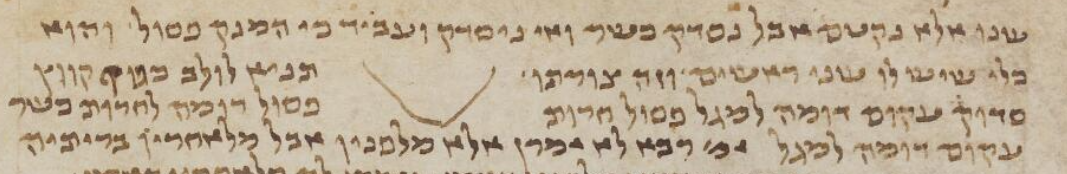 שנו אלא נקטם אבל נסדק כשר ואי ניסדק ועביד כי המנק פסול והוא
כלי שיש לו שני ראשים וזה צורתו תניא לולב כפוף קווץ
סדוק עקום דומה למגל פסול חרות פסול דומה לחרות כשר
עקום דומה למגל אמ׳ רבא לא אמרן אלא מלפניו אבל מלאחריו ברייתיה